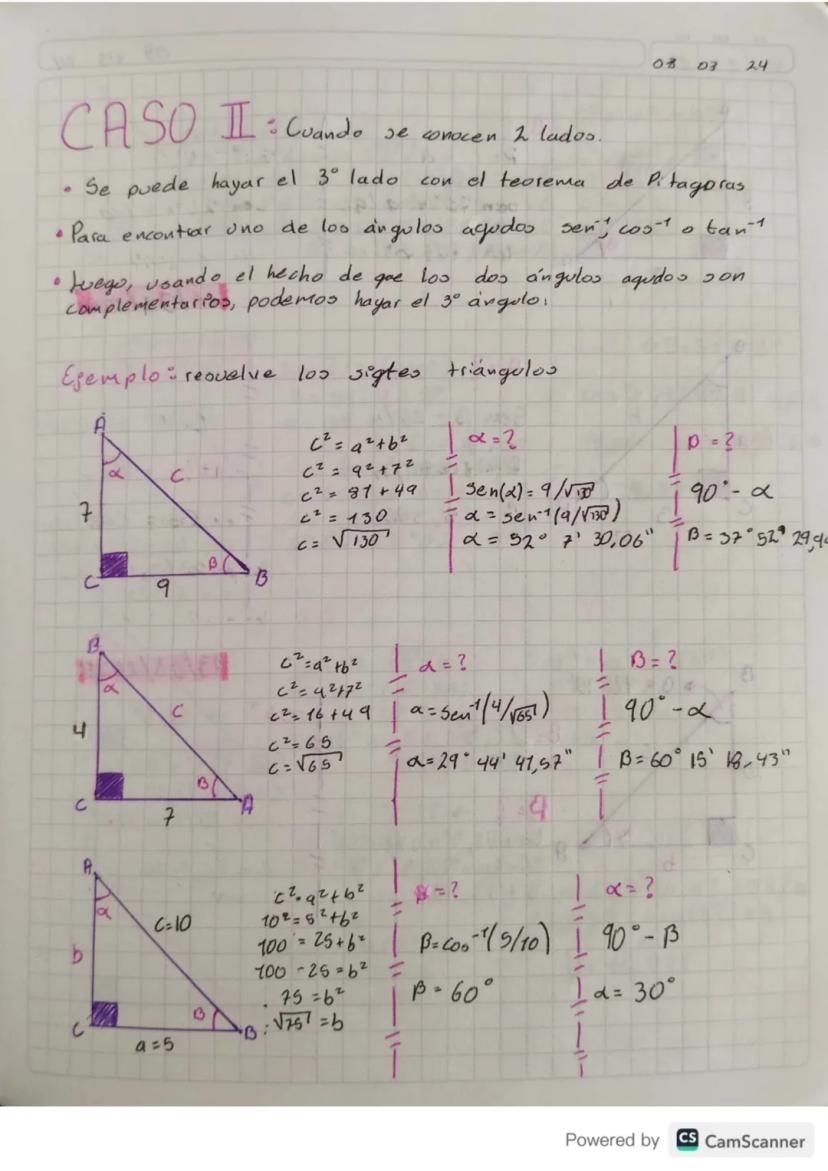 08 03 24
CASO II: Cuando se conocen 2 lados.
• Se puede hayar el 3° lado con el teorema de Pitagoras
• Para encontrar uno de los ángulos agudos sen⁻¹, cos⁻¹ o tan⁻¹
• Luego, usando el hecho de que los dos ángulos agudos son
complementarios, podemos hayar el 3° ángulo.
Ejemplo: resuelve los sigtes triángulos
A
α
C
7
C
9
β
B
c² = a²+b²
c² = 9²+7²
c² = 81+49
c² = 130
c = √130
α = ?
sen(α) = 9/√130
α = sen⁻¹(9/√130)
α = 52° 7' 30,06"
β = ?
90° - α
β = 37° 52' 29,94
B
α
C
4
C
7
β
A
c² = a²+b²
c² = 4²+7²
c² = 16+49
c² = 65
c = √65
α = ?
α = sen⁻¹(4/√65)
α = 29° 44' 41,57"
β = ?
90° - α
β = 60° 15' 18,43"
A
α
c=10
b
C
a=5
β
B
c² = a²+b²
10² = 5²+b²
100 = 25+b²
100 - 25 = b²
75 = b²
√75 = b
β = ?
β = cos⁻¹(5/10)
β = 60°
α = ?
90° - β
α = 30°
Powered by CS CamScanner